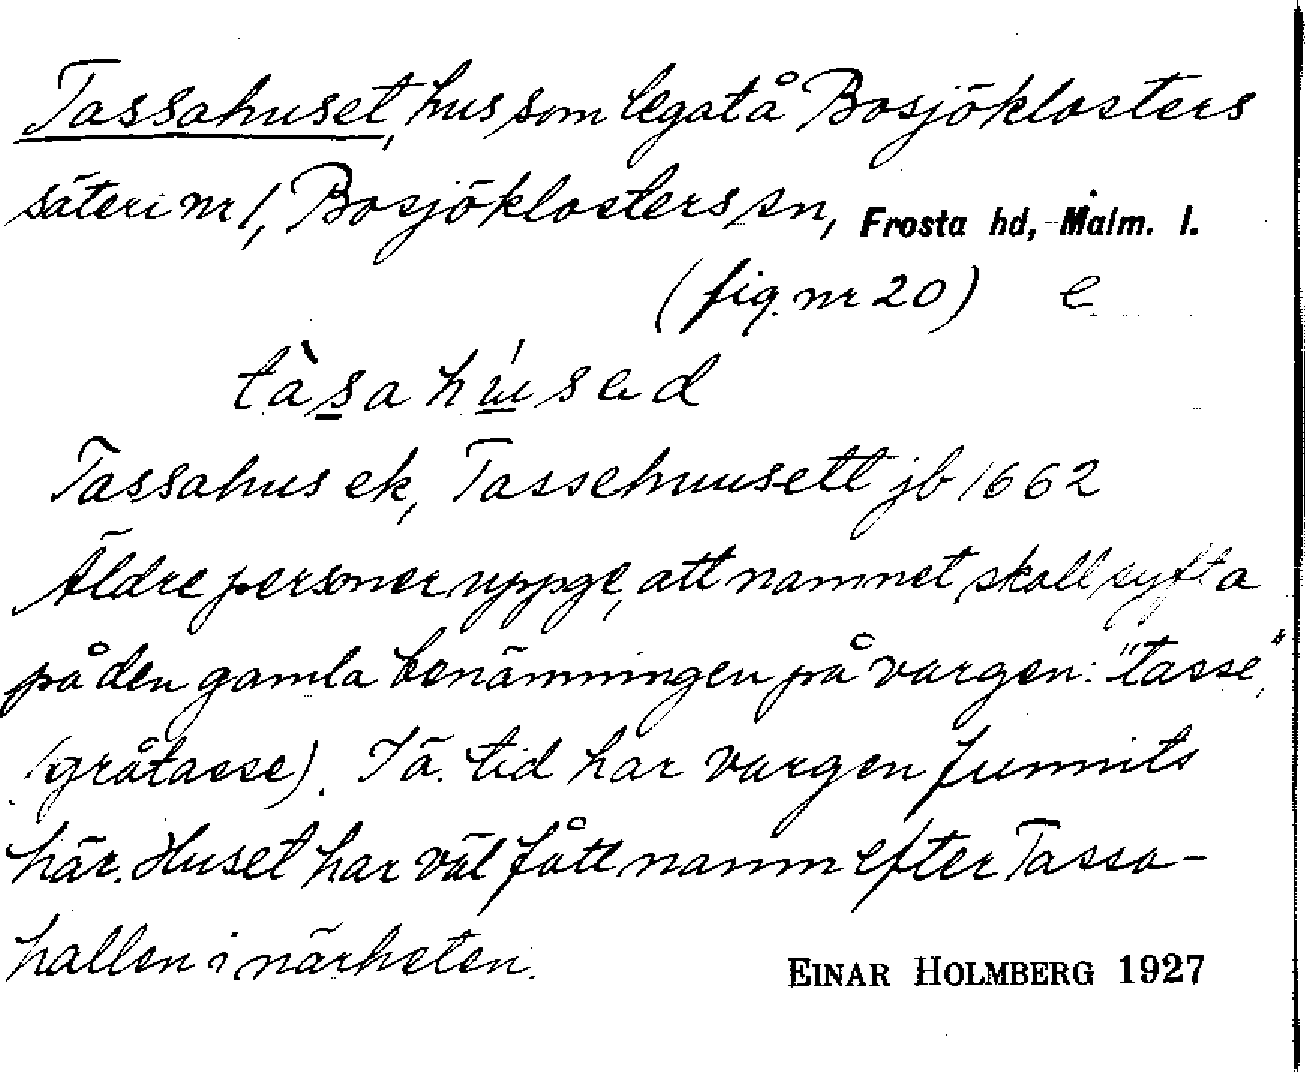 Tassahuset, hus som legat å Bosjöklosters
säteri nr 1, Bosjöklosters sn, Frosta hd, Malm. l.
(fig. nr 20) e
tàsahúsad
Tassahus ek, Tassehuusett jb 1662
Äldre personer uppge, att namnet skall syfta
på den gamla benämningen på vargen: "tasse",
(gråtasse). I ä. tid har vargen funnits
här. Huset har väl fått namn efter Tassa-
hallen i närheten.
EINAR HOLMBERG 1927